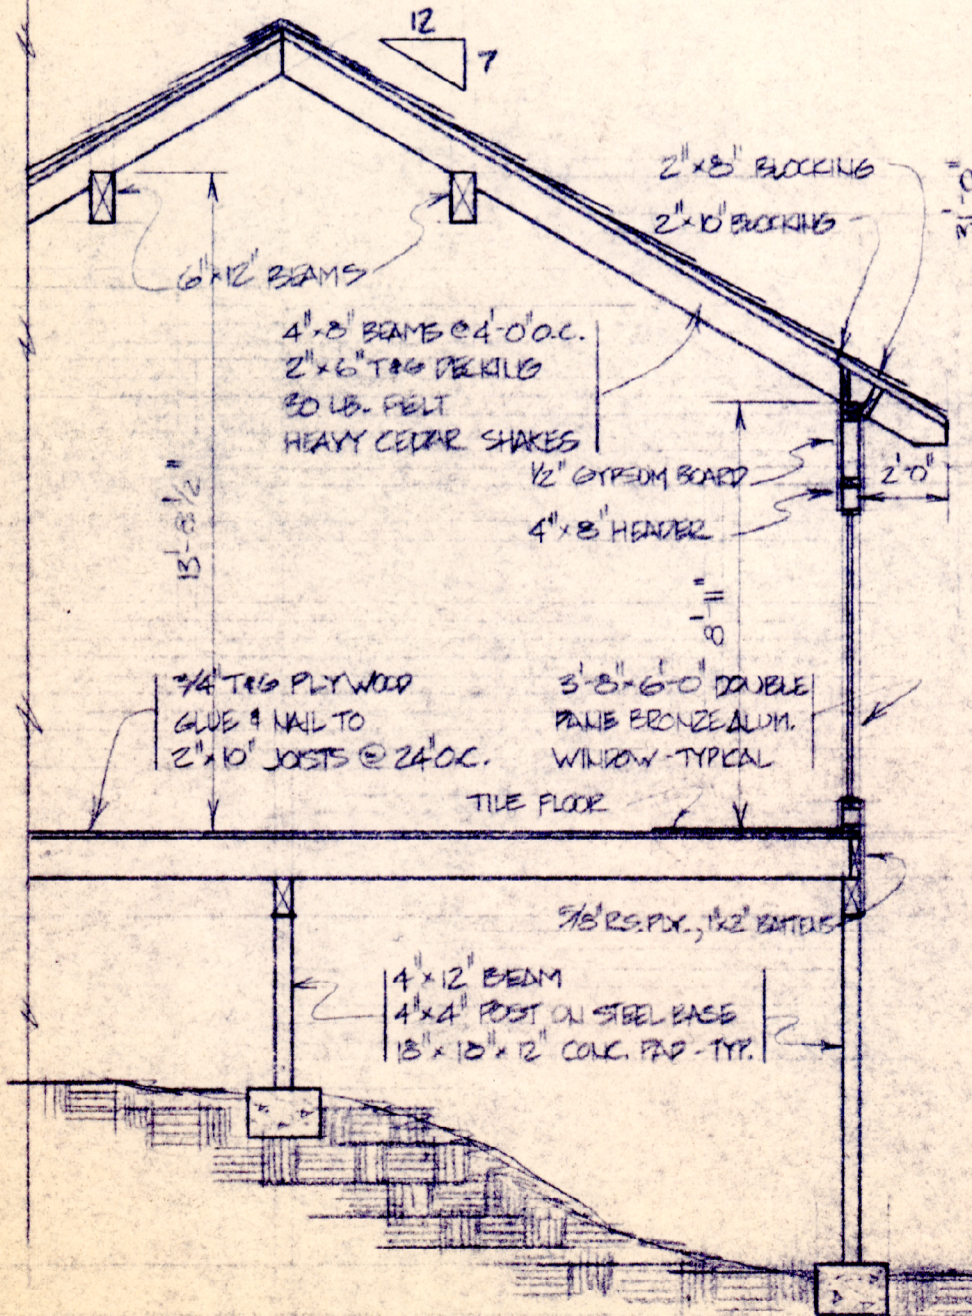 12
7
2"x8" BLOCKING
2"x10" BLOCKING
3'-0"
6"x12" BEAMS
4"x8" BEAMS @ 4'-0" O.C.
2"x6" T&G DECKING
30 LB. FELT
HEAVY CEDAR SHAKES
1/2" GYPSUM BOARD
2'-0"
4"x8" HEADER
13'-8 1/2"
8'-11"
3/4" T&G PLYWOOD
GLUE & NAIL TO
2"x10" JOISTS @ 24" O.C.
3'-8"x6'-0" DOUBLE
PANE BRONZE ALUM.
WINDOW - TYPICAL
TILE FLOOR
5/8" R.S. PLY., 1"x2" BATTENS
4"x12" BEAM
4"x4" POST ON STEEL BASE
18"x18"x12" CONC. PAD - TYP.